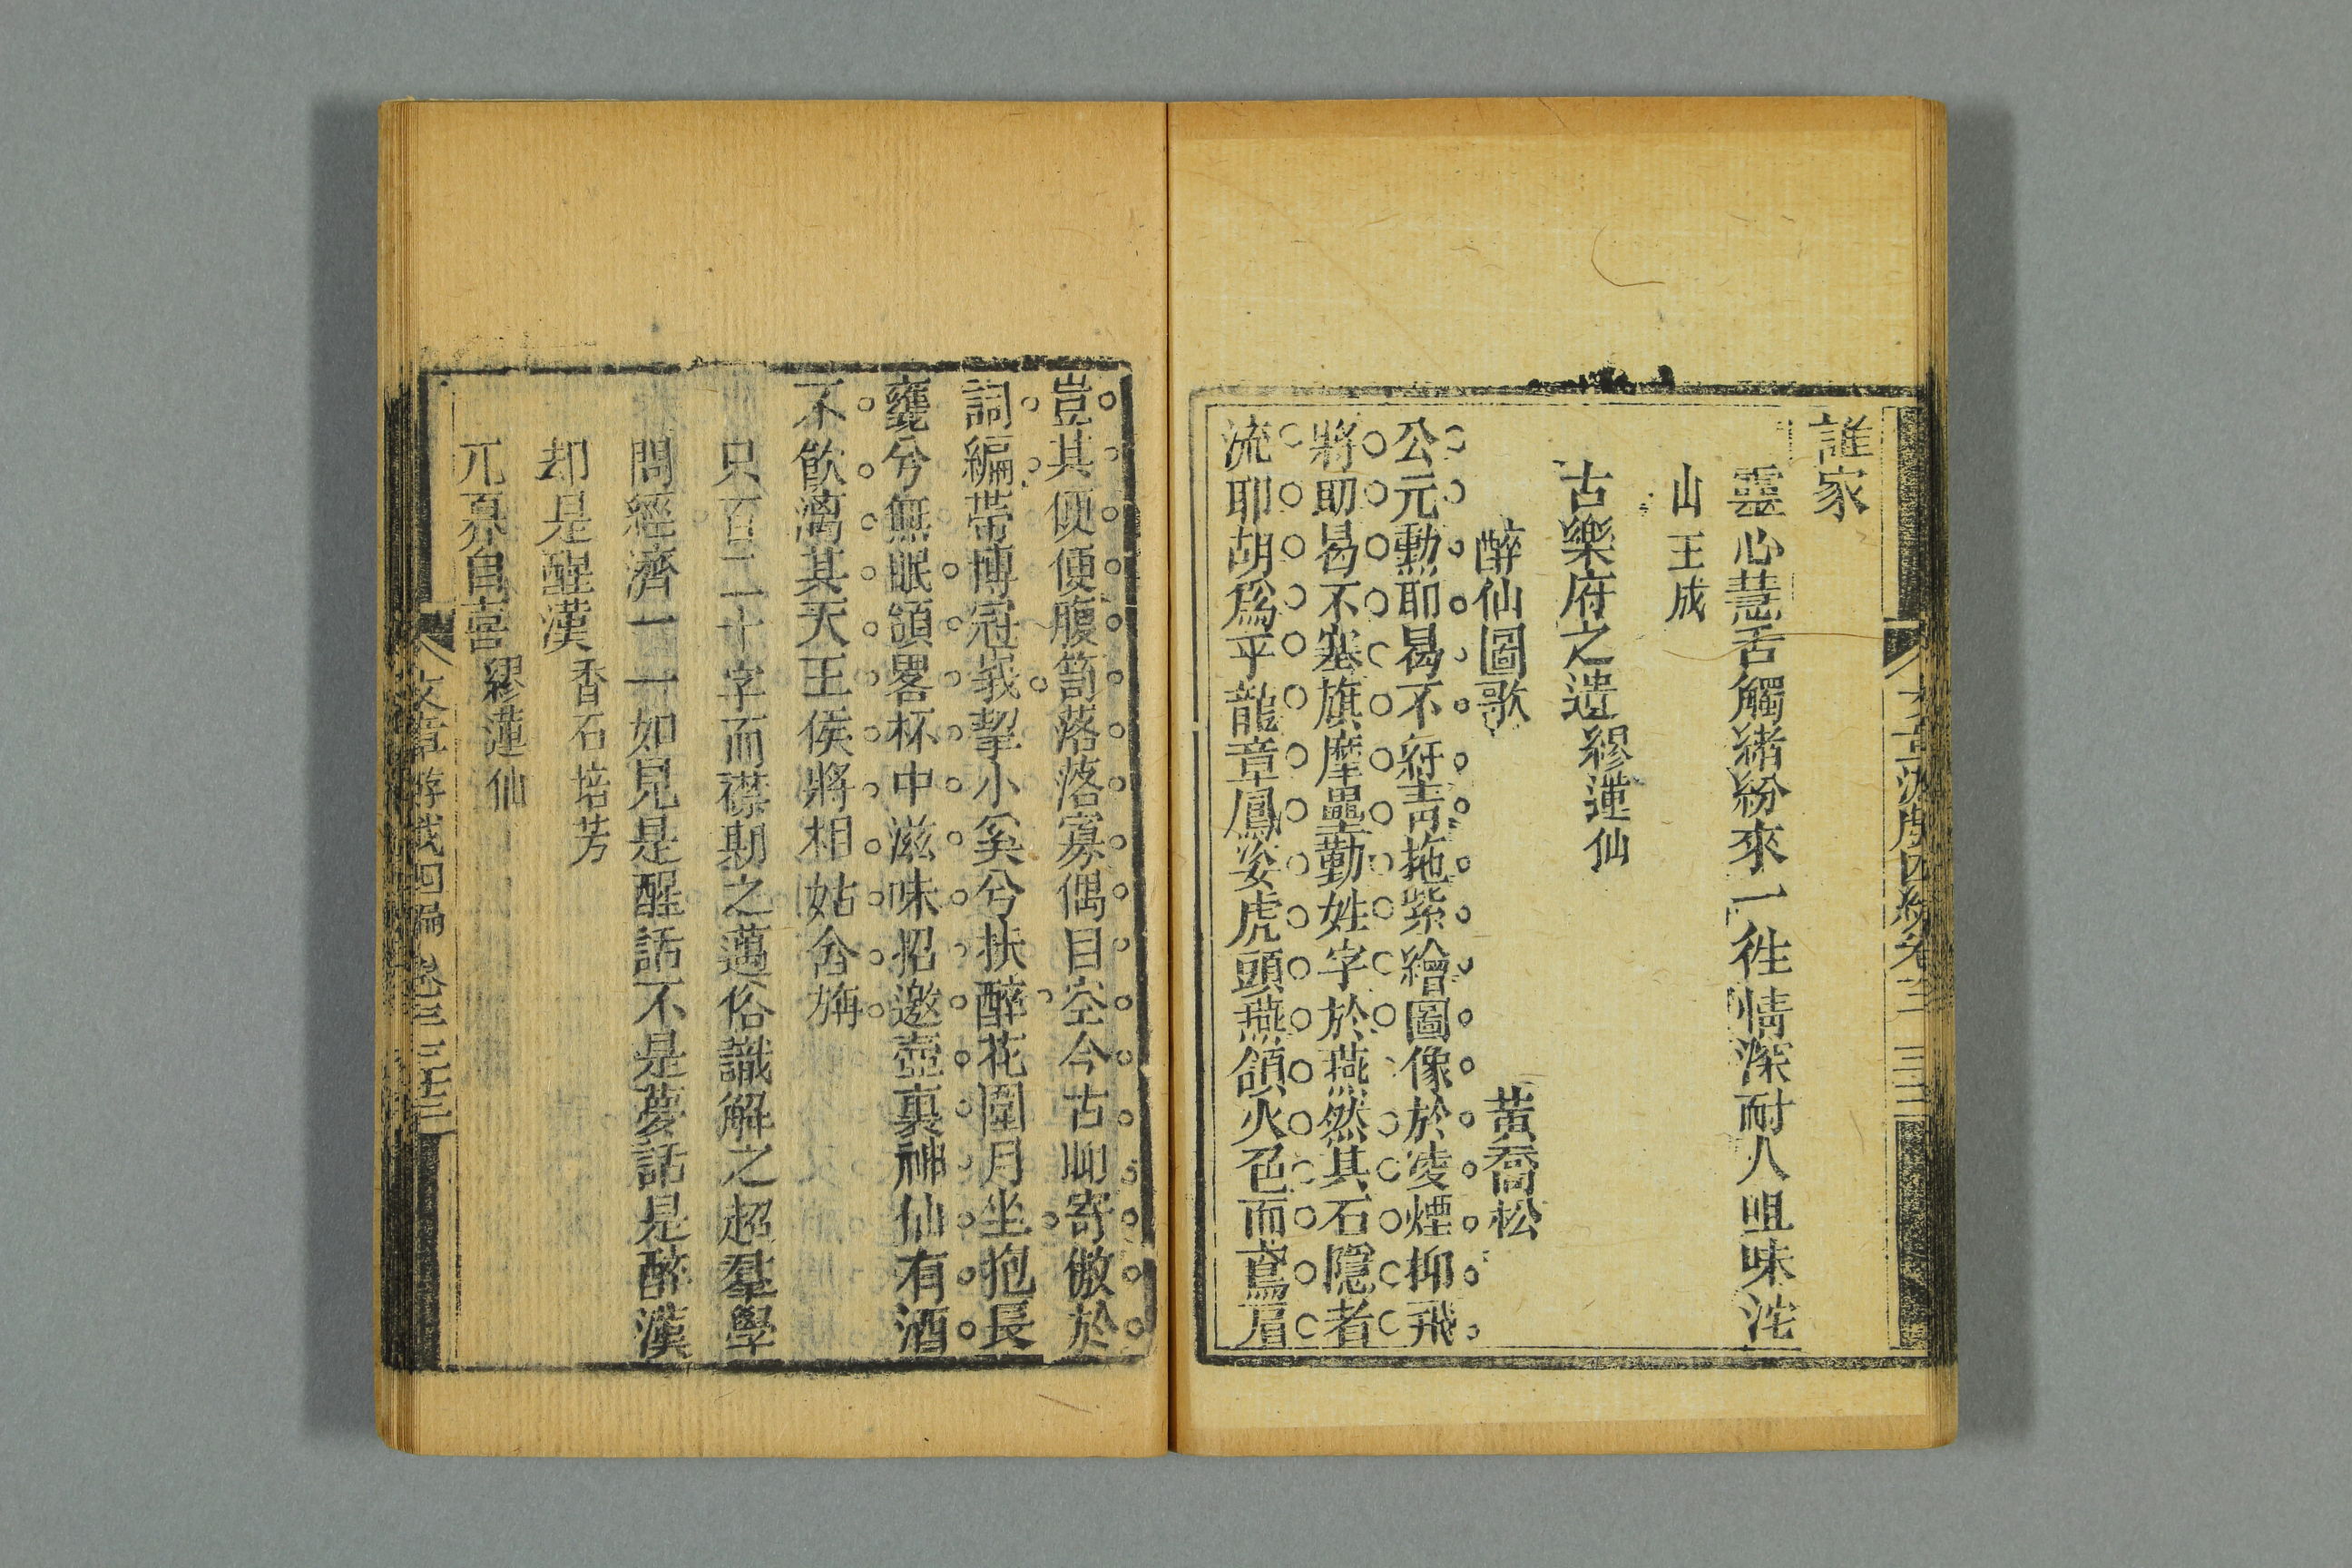 誰家
靈心慧舌觸緒紛來一往情深耐人咀味沱
山王成
古樂府之遺繆蓮仙
醉仙圖歌 黃喬松
公元勳耶曷不紆青拖紫繪圖像於凌煙抑飛
將耶曷不塞旗摩壘勤姓字於燕然其石隱者
流耶胡爲乎龍章鳳姿虎頭燕頷火色而鳶肩
豈其便便腹笥落落寡偶目空今古而寄傲於
詞編帶博冠峩挈小奚兮扶醉花圍月坐抱長
甕兮無眠頷畧杯中滋味招邀壺裏神仙有酒
不飲漓其天王侯將相姑舍旃
只百二十字而襟期之邁俗識解之超羣學
問經濟一一如見是醒話不是夢話是醉漢
却是醒漢香石培芳
兀奡自喜繆蓮仙
文章游戲四編 卷三 三十三